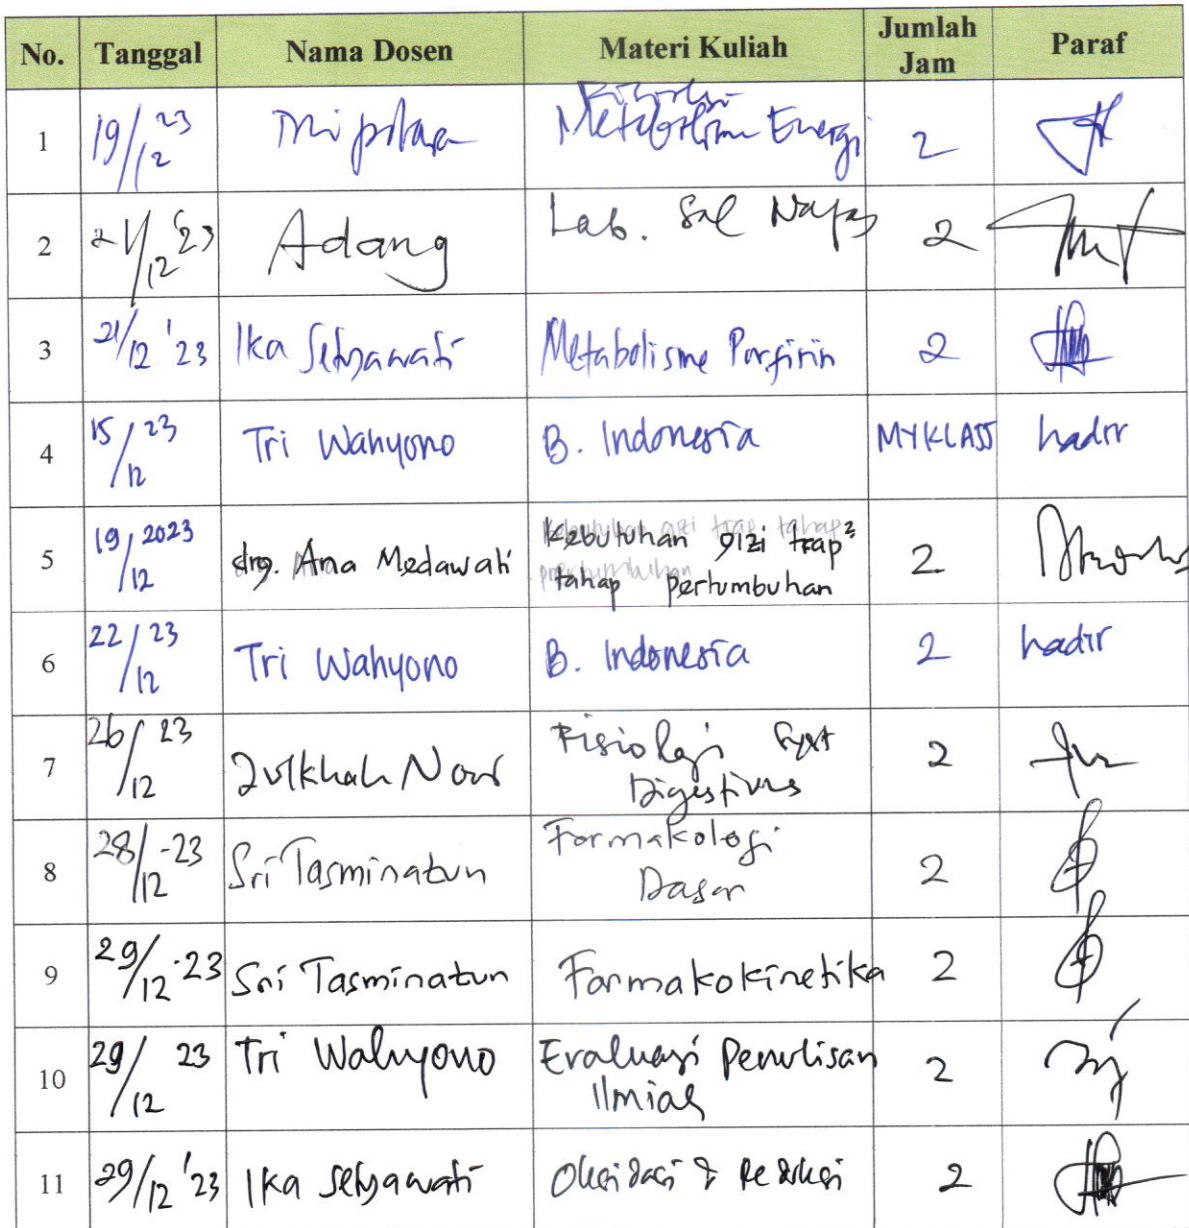 No. Tanggal Nama Dosen Materi Kuliah Jumlah Jam Paraf
1 19/12 23 Metabolisme Energi 2
2 21/12 '23 Adang Lab. Sal Nafas 2
3 21/12 '23 Ika Setyawati Metabolisme Porfirin 2
4 15/12 23 Tri Wahyono B. Indonesia MYKLASS hadir
5 19/12 2023 drg. Ana Medawati Kebutuhan gizi tiap²
tahap pertumbuhan 2
6 22/12 23 Tri Wahyono B. Indonesia 2 hadir
7 26/12 23 Zulkhah Noor Fisiologi Syst
Digestivus 2
8 28/12 -23 Sri Tasminatun Farmakologi
Dasar 2
9 29/12 -23 Sri Tasminatun Farmakokinetika 2
10 29/12 23 Tri Wahyono Evaluasi Penulisan
Ilmiah 2
11 29/12 '23 Ika Setyawati Oksidasi & Reduksi 2